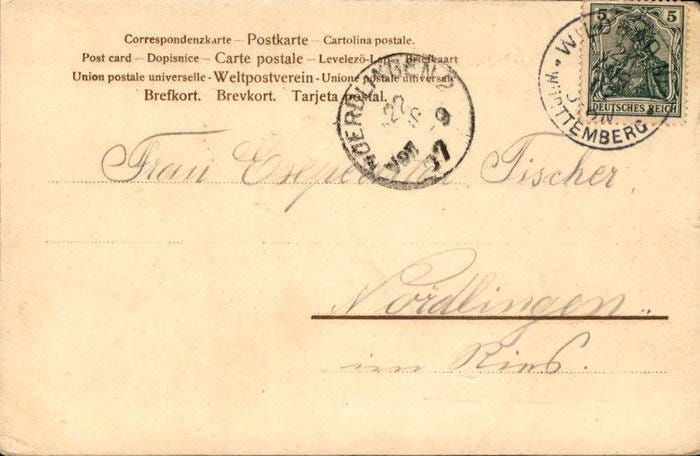 Correspondenzkarte – Postkarte – Cartolina postale.
Post card – Dopisnice – Carte postale – Levelező-Lap – Briefkaart
Union postale universelle – Weltpostverein – Unione postale universale
Brefkort. Brevkort. Tarjeta postal.
NOERDLINGEN 2
5 5
DEUTSCHES REICH
WÜRTTEMBERG
Frau Tischer,
Nördlingen
im Ries.